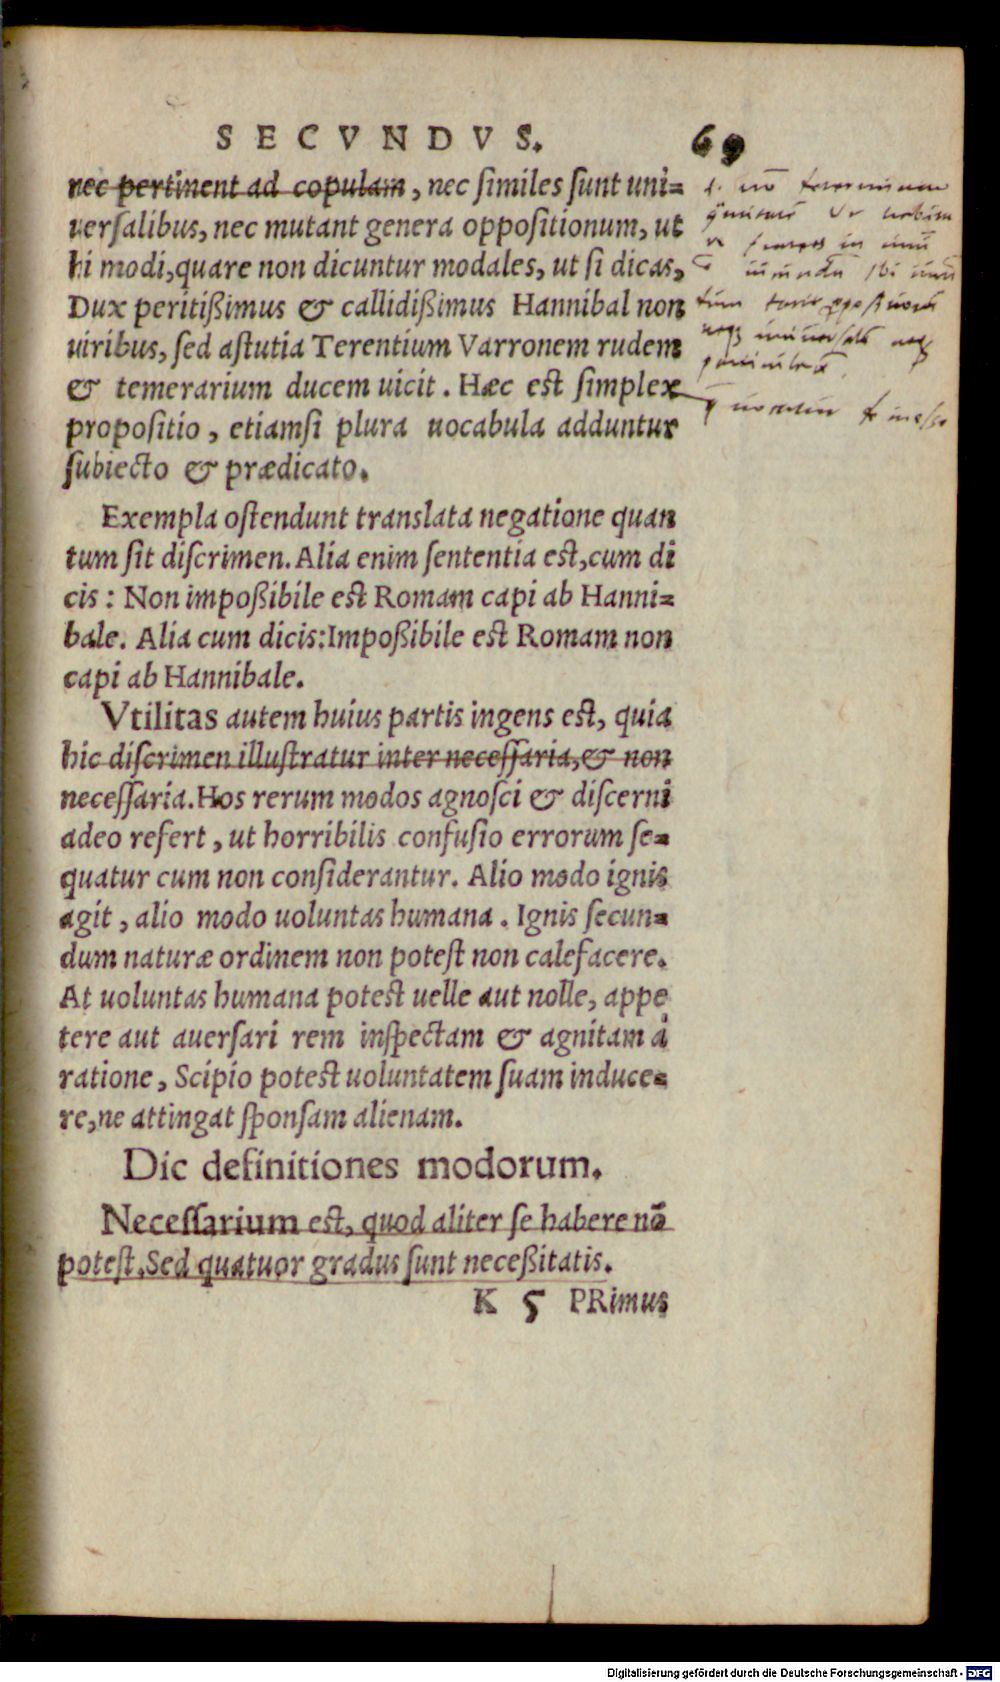 SECVNDVS. 69
nec pertinent ad copulam, nec similes sunt uni=
uersalibus, nec mutant genera oppositionum, ut
hi modi, quare non dicuntur modales, ut si dicas,
Dux peritißimus & callidißimus Hannibal non
uiribus, sed astutia Terentium Varronem rudem
& temerarium ducem uicit. Hæc est simplex
propositio, etiamsi plura uocabula adduntur
subiecto & prædicato.
Exempla ostendunt translata negatione quan
tum sit discrimen. Alia enim sententia est, cum di
cis: Non impoßibile est Romam capi ab Hanni=
bale. Alia cum dicis: Impoßibile est Romam non
capi ab Hannibale.
Vtilitas autem huius partis ingens est, quia
hic discrimen illustratur inter necessaria, & non
necessaria. Hos rerum modos agnosci & discerni
adeo refert, ut horribilis confusio errorum se=
quatur cum non considerantur. Alio modo ignis
agit, alio modo uoluntas humana. Ignis secun=
dum naturæ ordinem non potest non calefacere.
At uoluntas humana potest uelle aut nolle, appe
tere aut auersari rem inspectam & agnitam à
ratione, Scipio potest uoluntatem suam induce=
re, ne attingat sponsam alienam.
Dic definitiones modorum.
Necessarium est, quod aliter se habere nō
potest. Sed quatuor gradus sunt neceßitatis.
K 5 PRimus
Digitalisierung gefördert durch die Deutsche Forschungsgemeinschaft - DFG